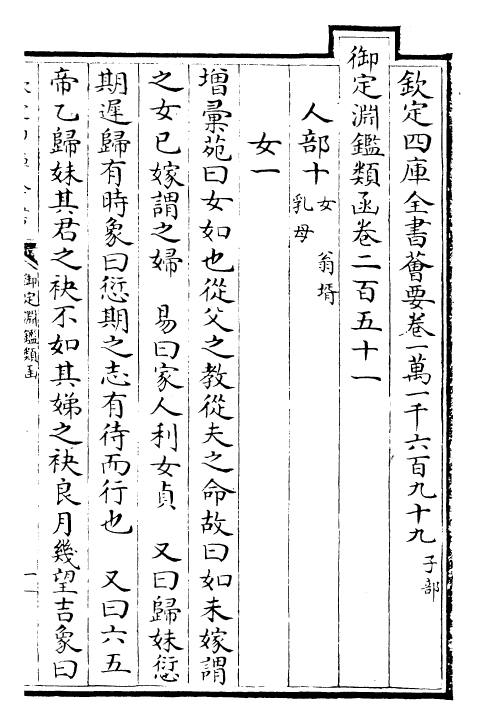 欽定四庫全書薈要卷一萬一千六百九十九 子部
御定淵鑑類函卷二百五十一
人部十 女 翁壻 乳母
女一
增彚苑曰女如也從父之教從夫之命故曰如未嫁謂
之女已嫁謂之婦 易曰家人利女貞 又曰歸妹愆
期遲歸有時象曰愆期之志有待而行也 又曰六五
帝乙歸妹其君之袂不如其娣之袂良月幾望吉象曰
御定淵鑑類函